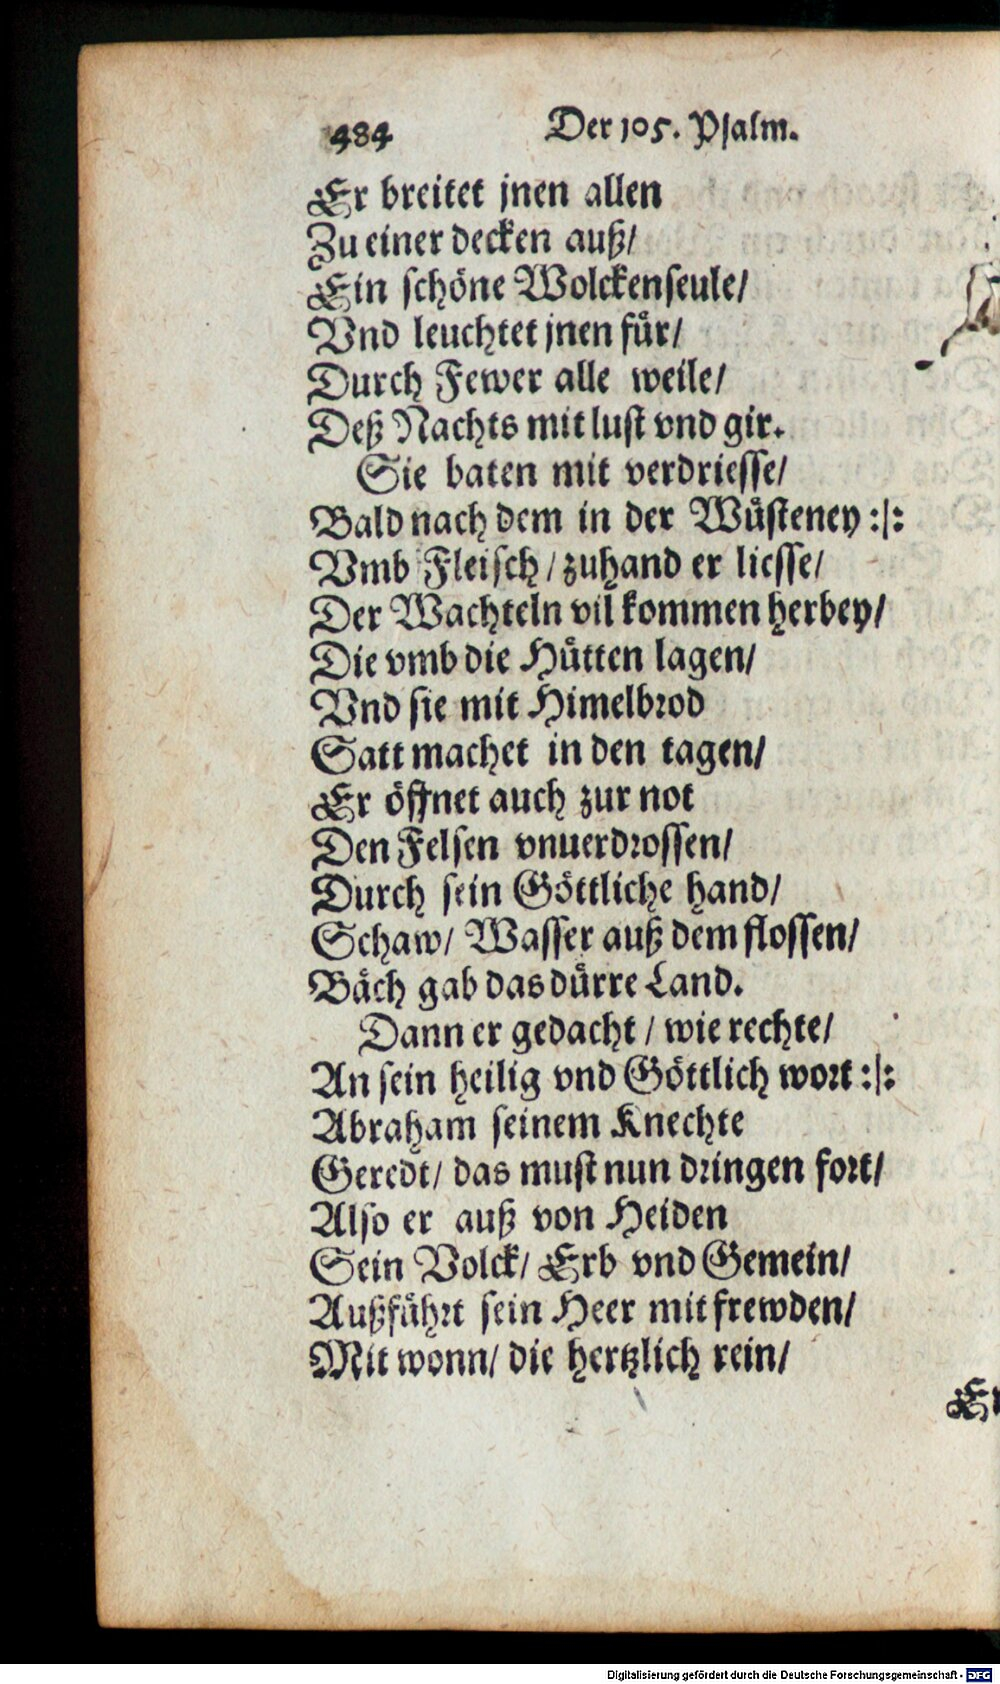 484 Der 105. Psalm.
Er breitet jnen allen
Zu einer decken auß/
Ein schöne Wolckenseule/
Vnd leuchtet jnen für/
Durch Fewer alle weile/
Deß Nachts mit lust vnd gir.
Sie baten mit verdriesse/
Bald nach dem in der Wüsteney :|:
Vmb Fleisch / zuhand er liesse/
Der Wachteln vil kommen herbey/
Die vmb die Hütten lagen/
Vnd sie mit Himelbrod
Satt machet in den tagen/
Er öffnet auch zur not
Den Felsen vnuerdrossen/
Durch sein Göttliche hand/
Schaw/ Wasser auß dem flossen/
Bäch gab das dürre Land.
Dann er gedacht / wie rechte/
An sein heilig vnd Göttlich wort :|:
Abraham seinem Knechte
Geredt/ das must nun dringen fort/
Also er auß von Heiden
Sein Volck/ Erb vnd Gemein/
Außführt sein Heer mit frewden/
Mit wonn/ die hertzlich rein/
Digitalisierung gefördert durch die Deutsche Forschungsgemeinschaft - DFG